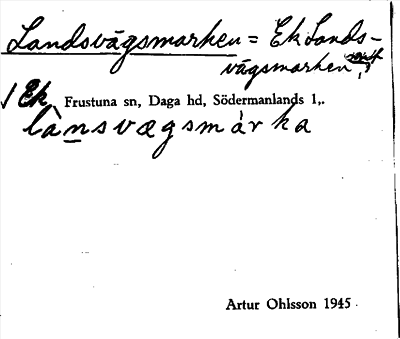 Landsvägsmarken = Ek Lands-
vägsmarken,
/ Ek, Frustuna sn, Daga hd, Södermanlands l,.
lànsvægsmárka
Artur Ohlsson 1945.